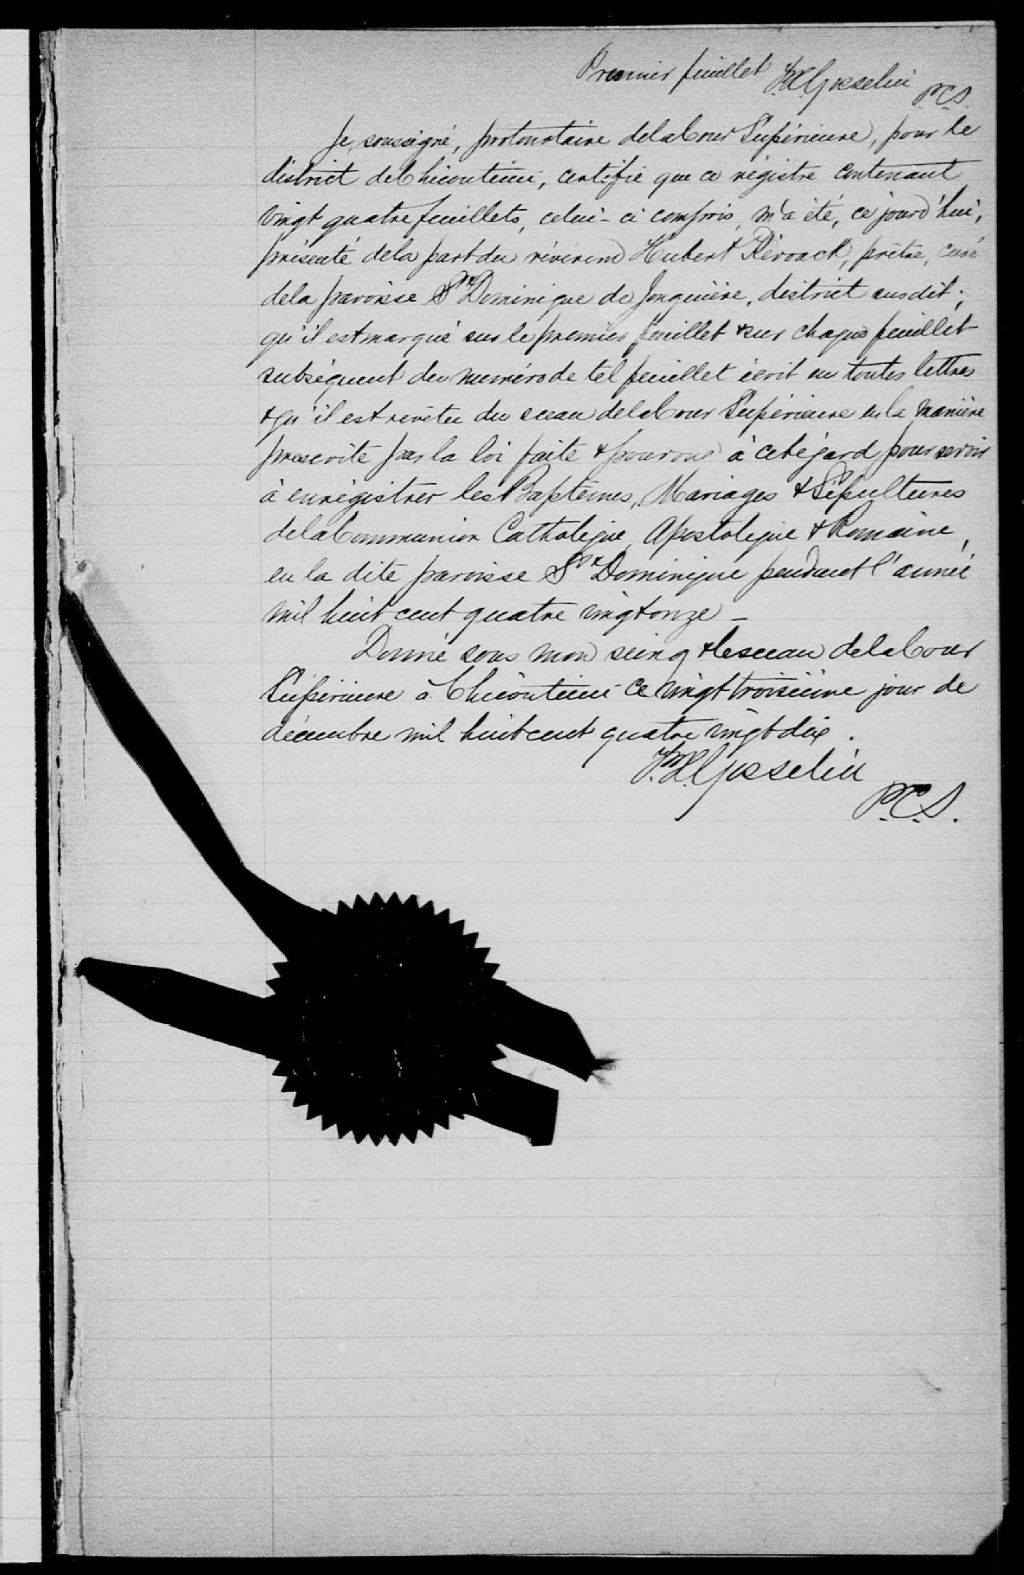 Premier feuillet F.X. Gosselin P.C.S.
Je, soussigné, protonotaire de la Cour Supérieure, pour le
district de Chicoutimi, certifie que ce régistre contenant
vingt quatre feuillets, celui-ci compris, m'a été, ce jourd'hui,
présenté de la part du révérend Hubert Kérouack, prêtre, curé
de la paroisse St Dominique de Jonquière, district susdit;
qu'il est marqué sur le premier feuillet & sur chaque feuillet
subséquent du numéro de tel feuillet écrit en toutes lettres
& qu'il est revêtu du sceau de la Cour Supérieure en la manière
prescrite par la loi faite & pourvue à cet égard pour servir
à enrégistrer les Baptêmes, Mariages & Sépultures
de la Communion Catholique, Apostolique & Romaine,
en la dite paroisse St Dominique pendant l'année
mil huit cent quatre vingt onze –
Donné sous mon seing & le sceau de la Cour
Supérieure à Chicoutimi ce vingt troisième jour de
décembre mil huit cent quatre vingt dix.
F.X. Gosselin
P.C.S.